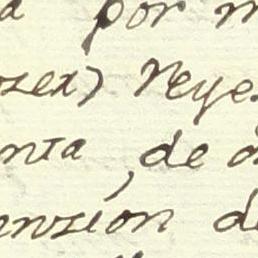 a por m
zex) reye
nta, de d
enzion de